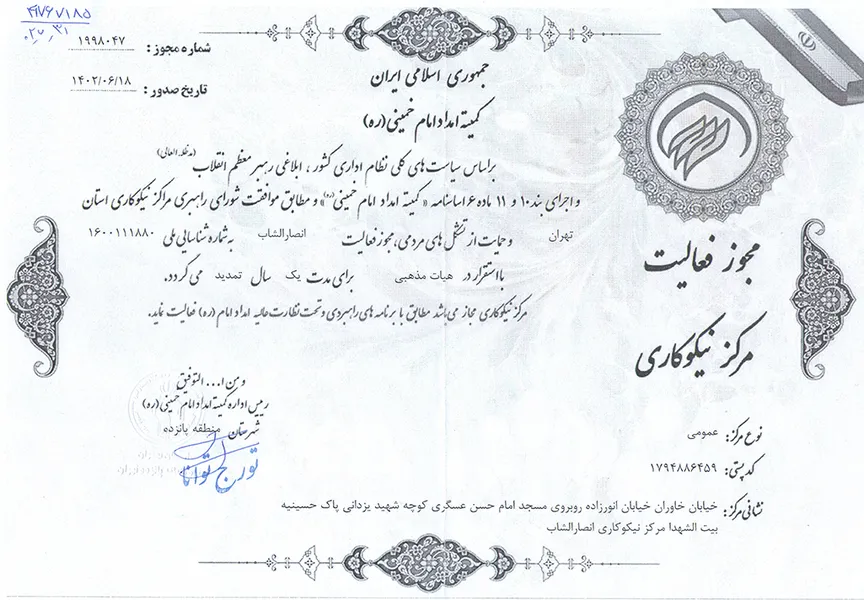 ۴۹۷۶۷۱۸۵
شماره مجوز : ۱۹۹۸۰۴۷
تاریخ صدور : ۱۴۰۲/۰۶/۱۸
جمهوری اسلامی ایران
کمیته امداد امام خمینی (ره)
براساس سیاست های کلی نظام اداری کشور ، ابلاغی رهبر معظم انقلاب (مدظله العالی)
و اجرای بند ۱۰ و ۱۱ ماده ۶ اساسنامه « کمیته امداد امام خمینی (ره)» و مطابق موافقت شورای راهبری مراکز نیکوکاری استان
تهران و حمایت از تشکل های مردمی، مجوز فعالیت انصارالشاب به شماره شناسایی ملی ۱۶۰۰۱۱۱۸۸۰
با استقرار در هیات مذهبی برای مدت یک سال تمدید می گردد.
مرکز نیکوکاری مجاز می باشد مطابق با برنامه های راهبردی و تحت نظارت عالیه امداد امام (ره) فعالیت نماید.
مجوز فعالیت
مرکز نیکوکاری
و من ا... التوفیق
رییس اداره کمیته امداد امام خمینی (ره)
شهرستان منطقه پانزده
تورج توانا
نوع مرکز : عمومی
کد پستی : ۱۷۹۴۸۸۶۴۵۹
نشانی مرکز : خیابان خاوران خیابان انورزاده روبروی مسجد امام حسن عسگری کوچه شهید یزدانی پاک حسینیه
بیت الشهدا مرکز نیکوکاری انصارالشاب